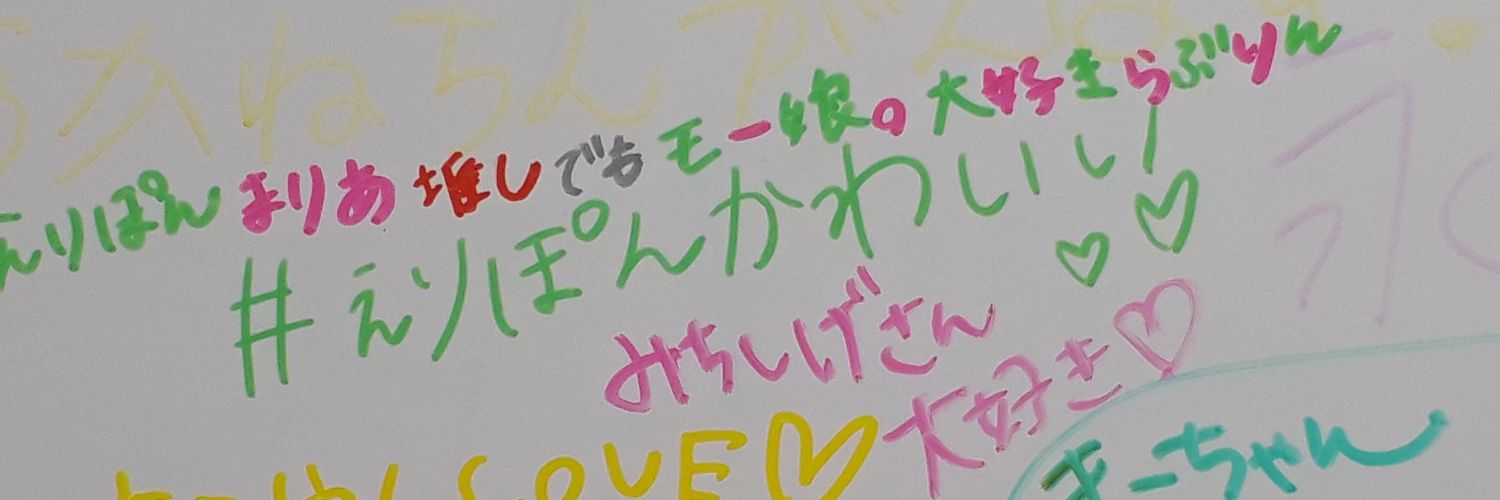 かねちんが
えりぽん まりあ 推し でも モー娘。大好き らぶりん
#えりぽんかわいい
みちしげさん
大好き♡
LOVE♡
まーちゃん